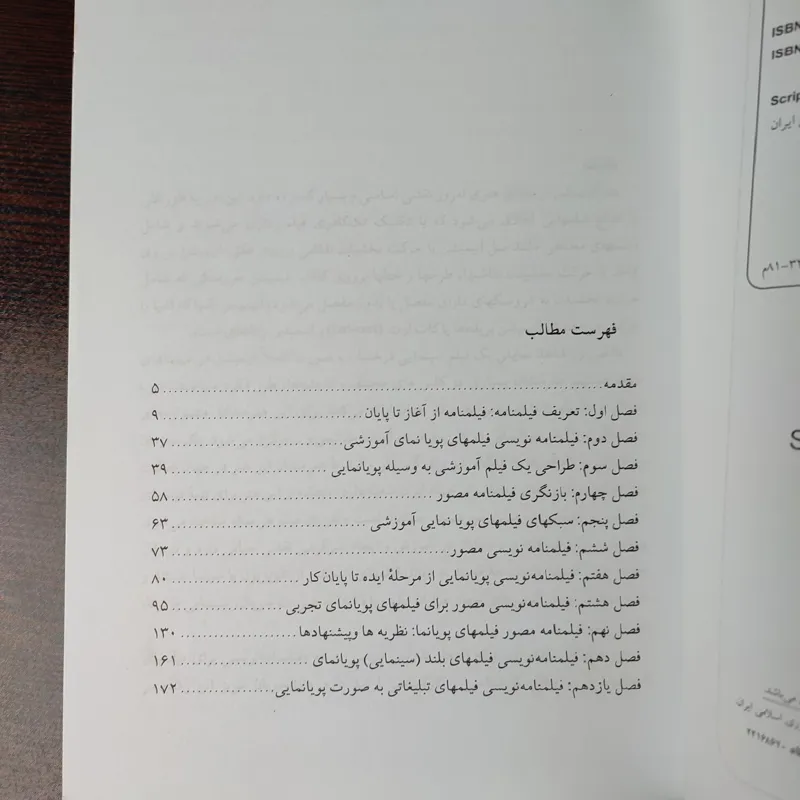 فهرست مطالب
مقدمه ........ ۵
فصل اول: تعریف فیلمنامه: فیلمنامه از آغاز تا پایان ........ ۹
فصل دوم: فیلمنامه نویسی فیلمهای پویا نمای آموزشی ........ ۳۷
فصل سوم: طراحی یک فیلم آموزشی به وسیله پویانمایی ........ ۳۹
فصل چهارم: بازنگری فیلمنامه مصور ........ ۵۸
فصل پنجم: سبکهای فیلمهای پویا نمایی آموزشی ........ ۶۳
فصل ششم: فیلمنامه نویسی مصور ........ ۷۳
فصل هفتم: فیلمنامه‌نویسی پویانمایی از مرحلهٔ ایده تا پایان کار ........ ۸۰
فصل هشتم: فیلمنامه‌نویسی مصور برای فیلمهای پویانمای تجربی ........ ۹۵
فصل نهم: فیلمنامه مصور فیلمهای پویانما: نظریه ها وپیشنهادها ........ ۱۳۰
فصل دهم: فیلمنامه‌نویسی فیلمهای بلند (سینمایی) پویانمای ........ ۱۶۱
فصل یازدهم: فیلمنامه‌نویسی فیلمهای تبلیغاتی به صورت پویانمایی ........ ۱۷۲
ISBN
ISBN
Scrip
ایران
م۸۱-۳۲
S
می‌باشد
اسلامی ایران